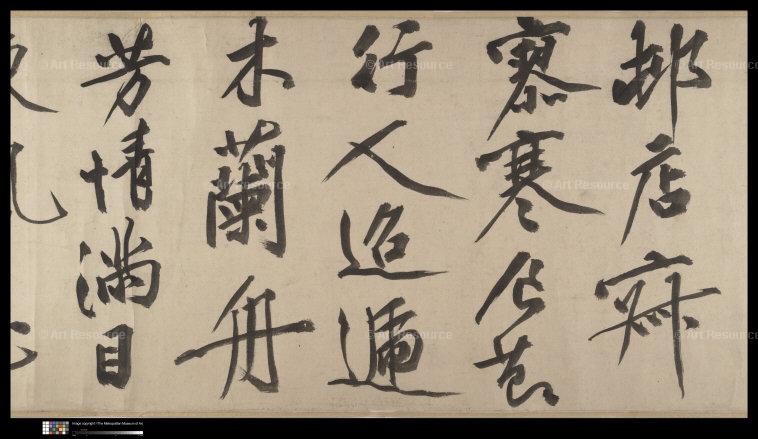 邨店寂
寥寒食
行人迢遞
木蘭舟
芳情滿目
© Art Resource
© Art Resource
© Art Resource
© Art Resource
© Art Resource
© Art Resource
© Art Resource
© Art Resource
© Art Resource
Image copyright ©The Metropolitan Museum of Art